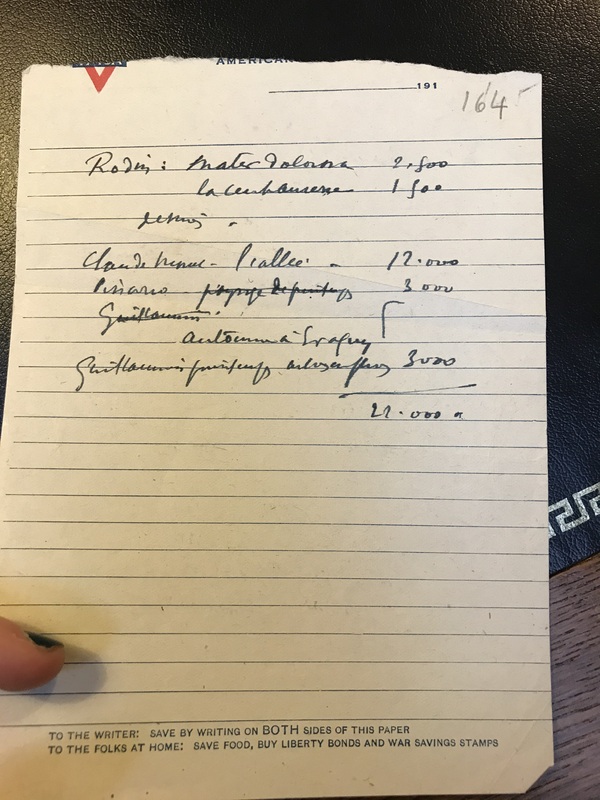 AMERICAN
191
1645
Rodin: Mater Dolorosa 2.500
1500
Claude Monet - l'allée. - 12.000
Pissarro - paysage de printemps 3000
Guillaumin.
automne à Eragny
Guillaumin printemps arbres en fleurs 3000
22.000
TO THE WRITER: SAVE BY WRITING ON BOTH SIDES OF THIS PAPER
TO THE FOLKS AT HOME: SAVE FOOD, BUY LIBERTY BONDS AND WAR SAVINGS STAMPS